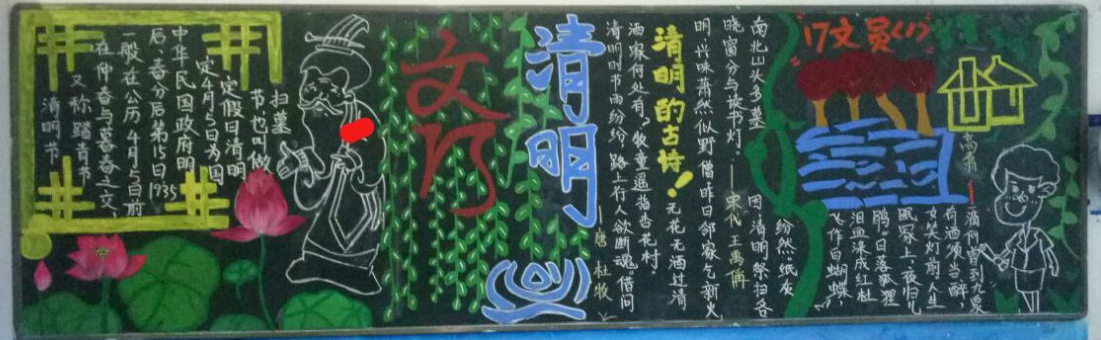 清明节
又称踏青节
在仲春与暮春之交,
一般在公历4月5日前
后,春分后第15日1935
中华民国政府明
定4月5日为国
定假日清明
节也叫做
扫墓
文
清明
——唐 杜牧
清明时节雨纷纷,路上行人欲断魂,借问
酒家何处有,牧童遥指杏花村
清明的古诗!
无花无酒过清
明,兴味萧然似野僧昨日邻家乞新火
晓窗分与读书灯。——宋代 王禹偁
南北山头多墓
田,清明祭扫各
纷然纸灰
飞作白蝴蝶
泪血染成红杜
鹃日落狐狸
眠冢上,夜归儿
女笑灯前人生
有酒须当醉,
一滴何曾到九泉
高翥
17文员(1)